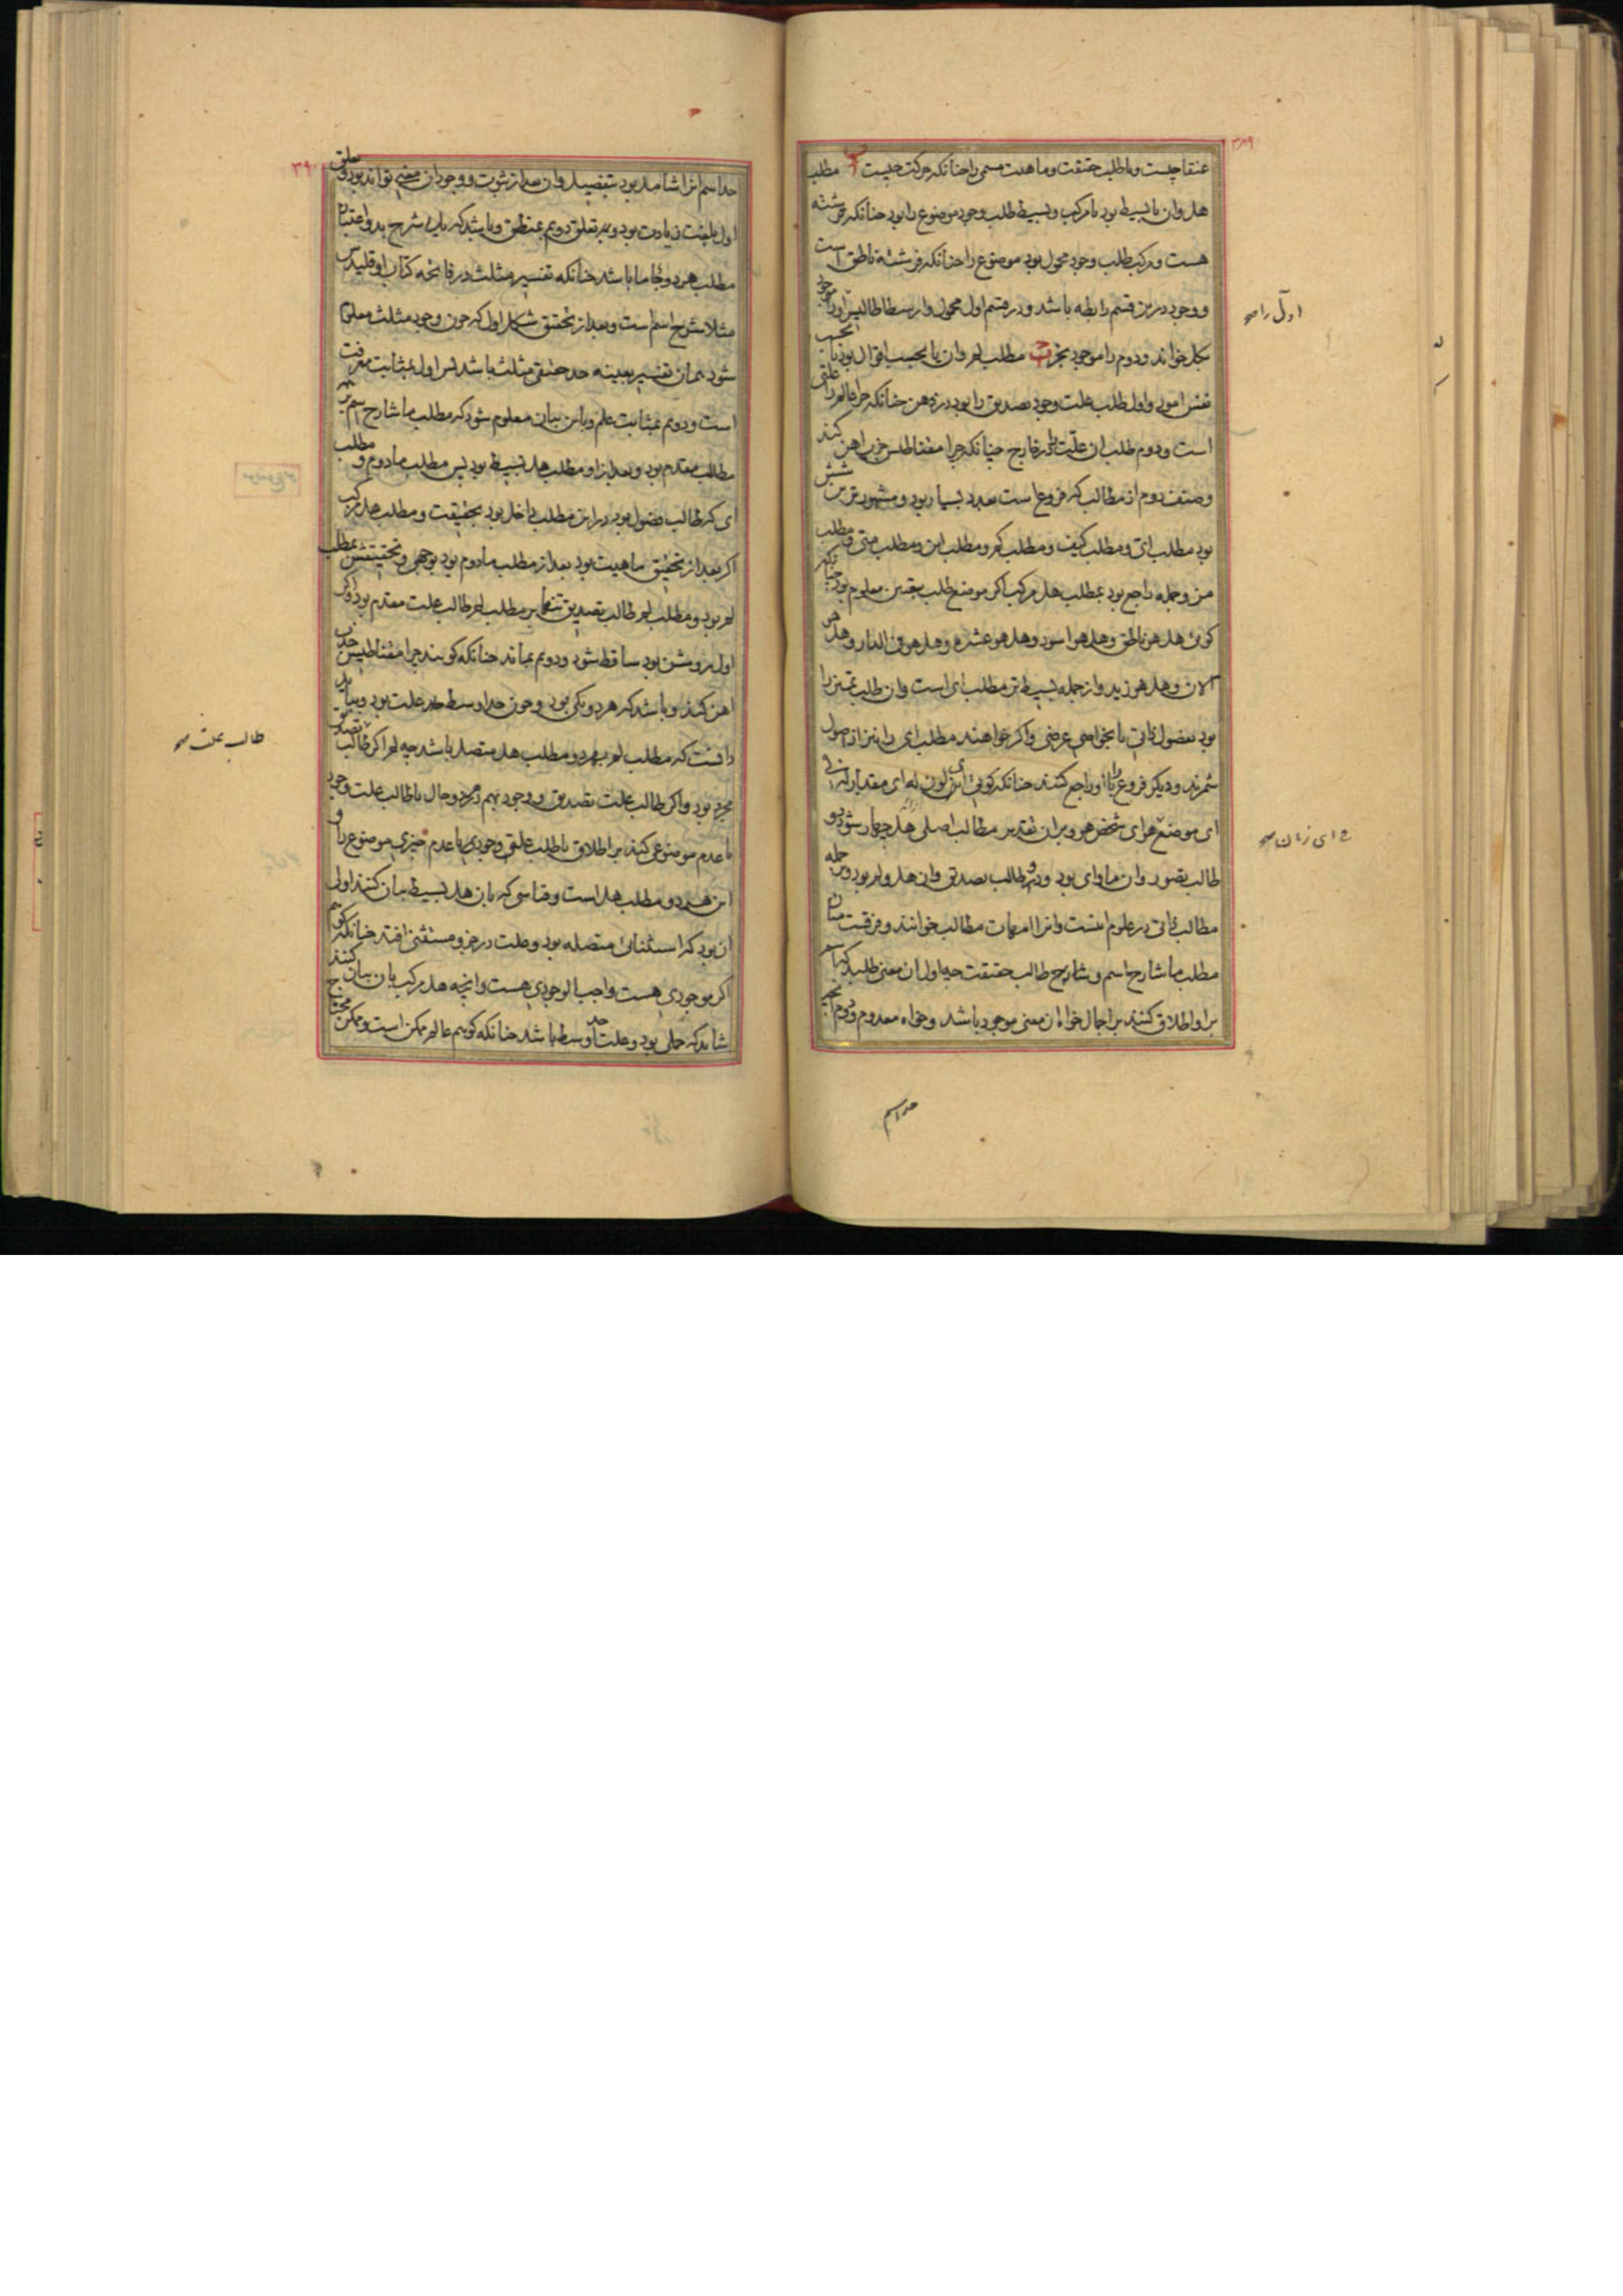 ۳۸۹
عنقا چیست و یا طلب حقیقت و ماهیت مسمی را چنانکه حرکت چیست ب مطلب
هل و ان یا بسیط بود یا مرکب و بسیط طلب وجود موضوع را بود چنانکه فرشته
هست و مرکب طلب وجود محمول بود موضوع را چنانکه فرشته ناطق است
و وجود درین قسم رابطه باشد و در قسم اول محمول و ارسطاطالیس اول را موجود
بکل خواند و دوم را موجود بجزو ج مطلب لم و ان یا بحسب اقوال بود یا بحسب
نفس امور و اول طلب علت وجود تصدیق را بود در ذهن چنانکه چرا عالم را علتی
است و دوم طلب ان علت در خارج چنانکه چرا مغناطیس جذب اهن کند
و صنف دوم از مطالب که فروع است بعدد بسیار بود و مشهورترین شش
بود مطلب ای و مطلب کیف و مطلب کم و مطلب این و مطلب متی و مطلب
من و جمله راجع بود بمطلب هل مرکب اگر موضع طلب بیقین معلوم بود چنانکه
کوئی هل هو ناطق و هل هو اسود و هل هو عشره و هل هو فی الدار و هل هو
الان و هل هو زید و از جمله بسیط تر مطلب ای است و ان طلب تمیز را
بود بفصول ذاتی یا بخواص عرضی و اگر خواهند مطلب ای را نیز از اصول
شمرند و دیگر فروع را با او راجع کنند چنانکه کوئی ای لون له ای مقدار له فی
ای موضع هو ای شخص هو و بران تقدیر مطالب اصلی چهار شود دو
طالب تصور و ان ما و ای بود و دو طالب تصدیق و ان هل و لم بود و جمله
مطالب ذاتی در علوم اینست و انرا امهات مطالب خوانند و فرقست میان
مطلب ما شارح اسم و شارح طالب حقیقت چه اول ان معنی طلبد که اسم
بر او اطلاق کنند بر اجمال خواه ان معنی موجود باشد و خواه معدوم و دوم انچه
حد اسم
اول را صح
ای زمان صح
۳۹۰
حد اسم انرا شامل بود بتفصیل و ان بعد از ثبوت و وجود ان معنی تواند بود و تعلق
اول بلغت زیادت بود و تعلق دویم بمنطق و باشد که یک شرح بدو اعتبار
مطلب هر دو ما باشد چنانکه تفسیر مثلث در فاتحه کتاب اوقلیدس
مثلا شرح اسم است و بعد از تحقیق شکل اول که چون وجود مثلث معلوم
شود همان تفسیر بعینه حد حقیقی مثلث باشد پس اول بمثابت معرفت
است و دویم بمثابت علم و باین بیان معلوم شود که مطلب ما شارح اسم بر
مطالب مقدم بود و بعد ازاو مطلب هل بسیط بود پس مطلب ما دوم و مطلب
ای که طالب فصول بود در این مطلب داخل بود بحقیقت و مطلب هل مرکب
اگر بعد از تحقیق ماهیت بود بعد از مطلب ما دوم بود
لم بود و مطلب لم طالب تصدیق تنها بر مطلب لم طالب علت مقدم بود و اگر
اول روشن بود ساقط شود و دویم بماند چنانکه کویند چرا مغناطیس جذب
اهن کند و باشد که هر دو یکی بود و چون حد اوسط علت بود
دانست که مطلب لم بهر دو مطلب هل متصل باشد چه لم اگر طالب تصدیق
مجرد بود و اگر طالب علت تصدیق و وجود بهم بهر دو حال یا طالب علت وجود
یا عدم موضوعی کند بر اطلاق یا طلب علت وجود یا عدم چیزی موضوع را و
این هر دو مطلب هل است و قیاسی که بان هل بسیط بیان کنند اولی
ان بود که استثنائی متصله بود و علت در جزو مستثنی افتد چنانکه کویم
اگر موجودی هست واجب الوجودی هست و انچه هل مرکب بان بیان کنند
شاید که حملی بود و علت حد اوسط باشد چنانکه کویم عالم ممکن است و ممکن محتاج
طالب علت صح